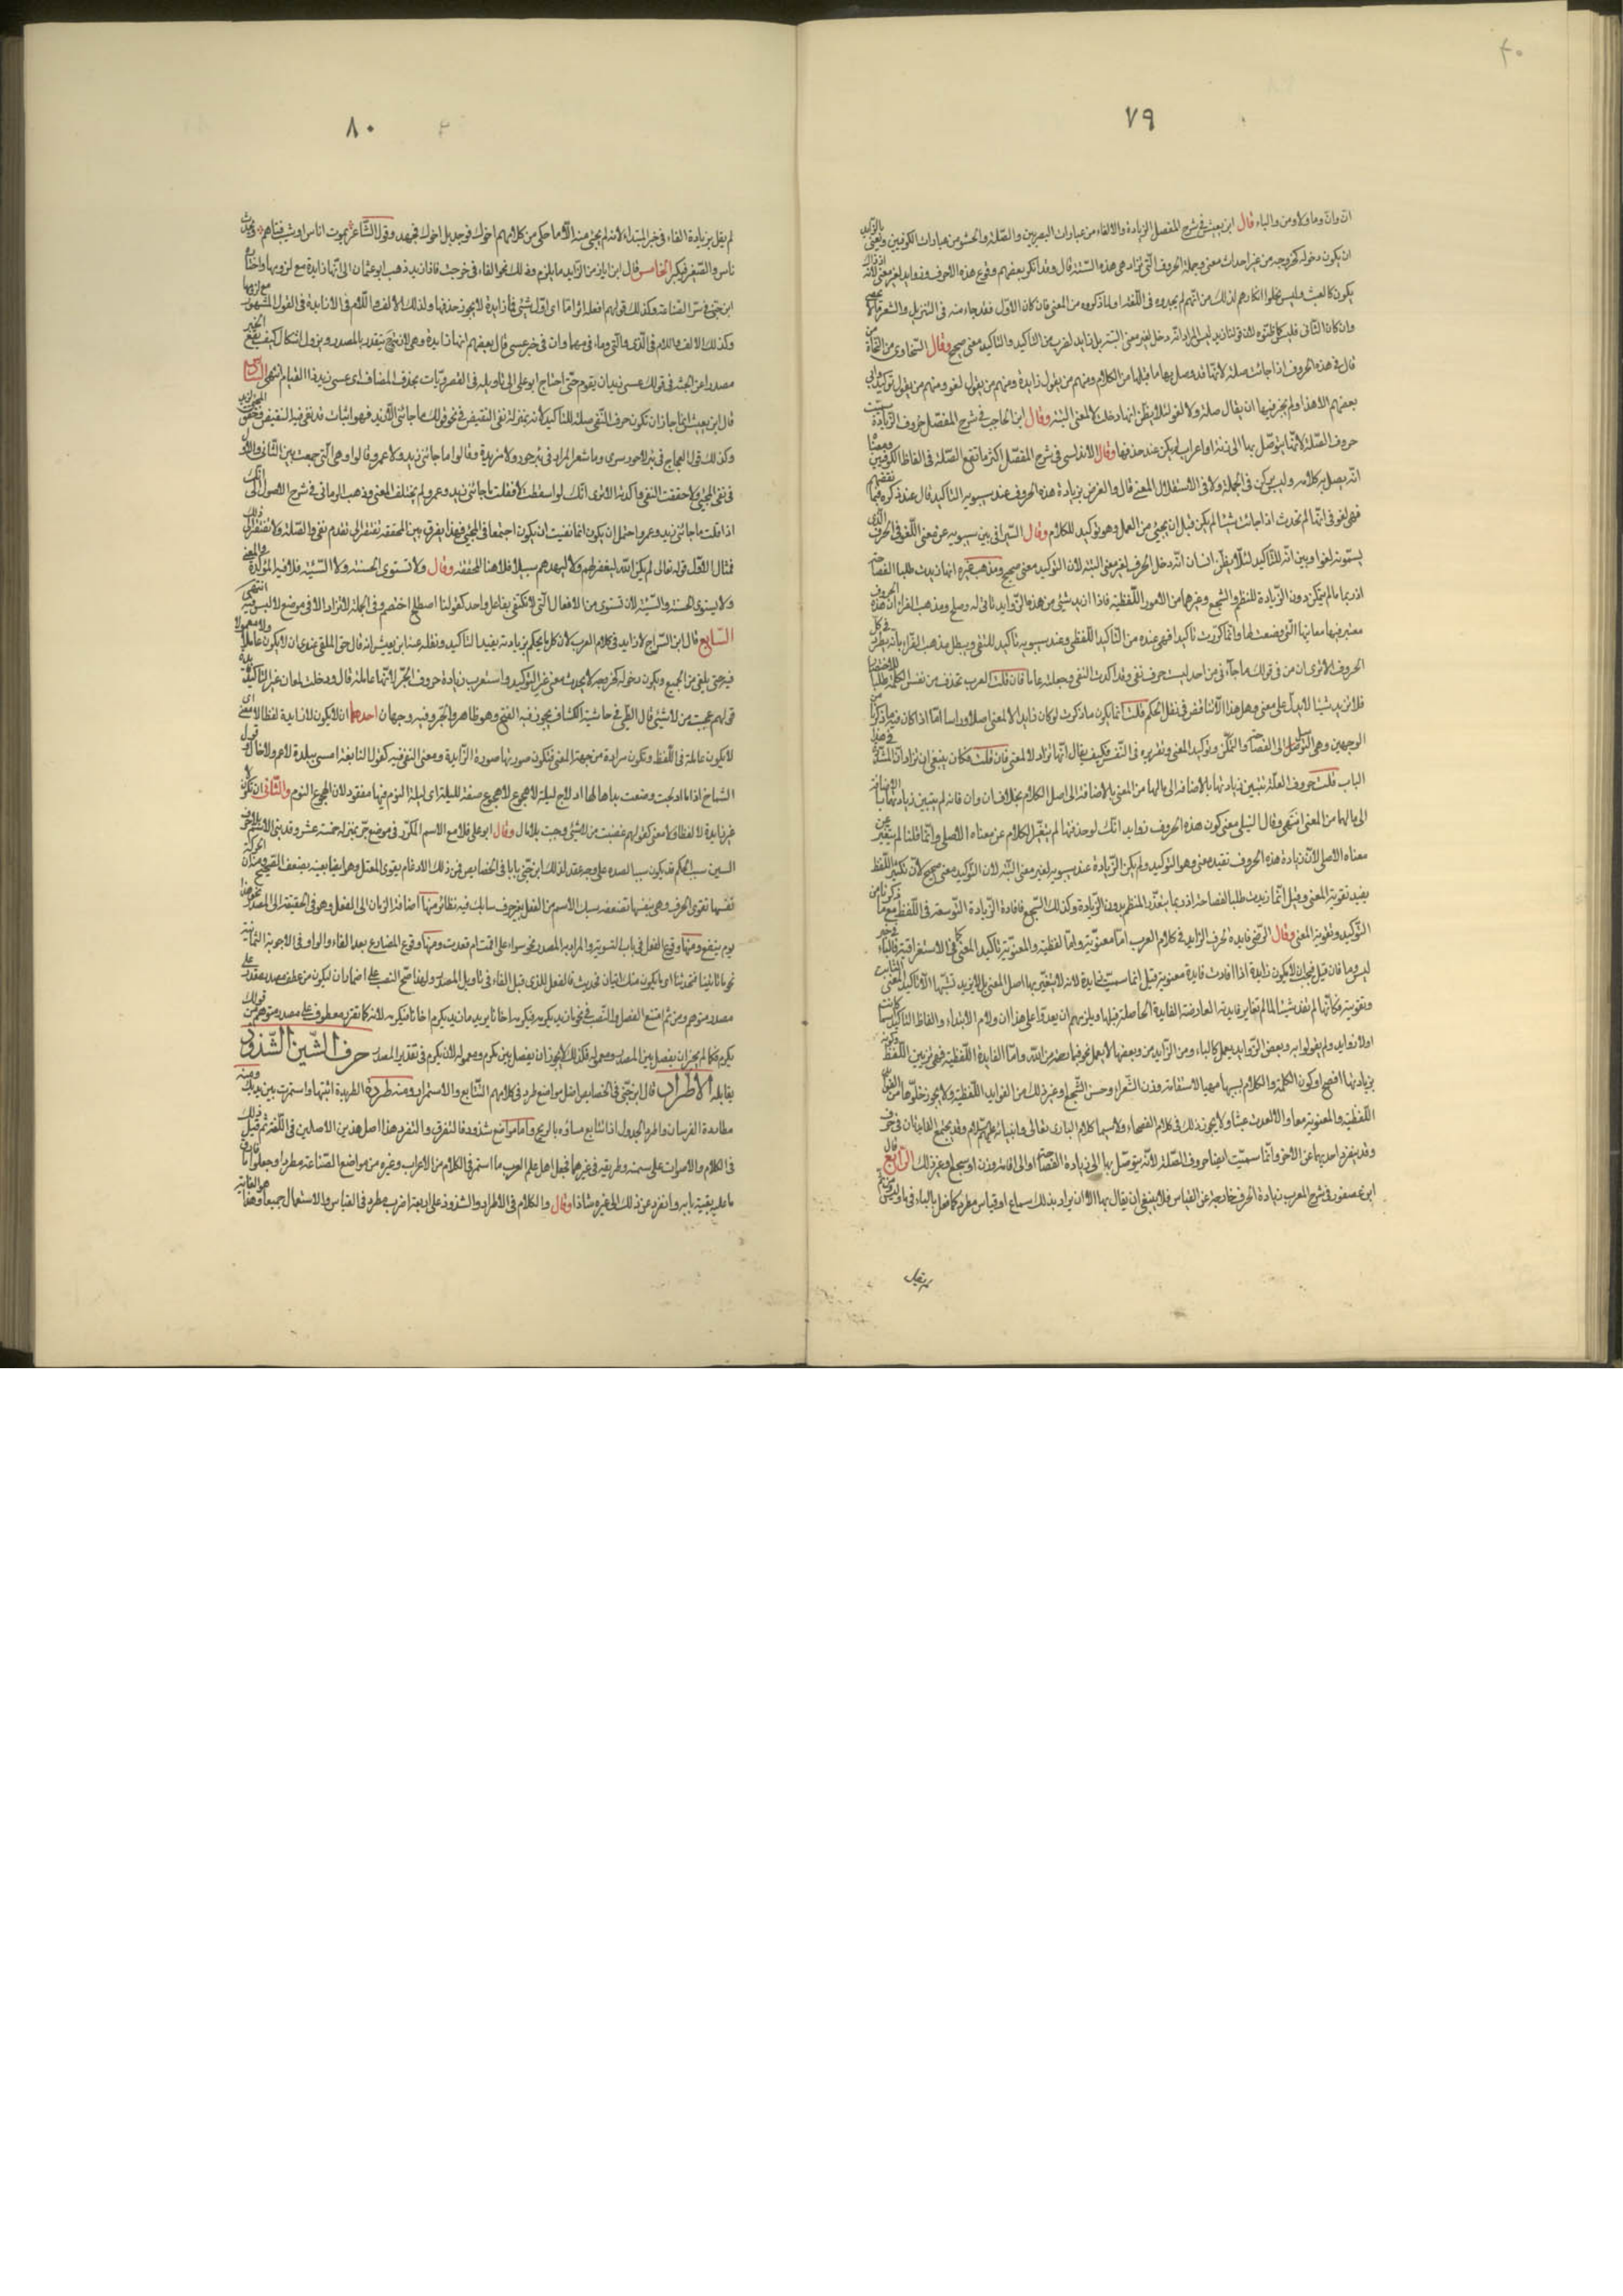 ٤٠
٧٩
ان وان وما ولا ومن والباء قال ابن يعيش في شرح المفصل الزيادة والالغاء من عبارات البصريين والصلة والحشو من عبارات الكوفيين ونعنى بالزايد
ان يكون دخوله كخروجه من غير احداث معنى وجملة الحروف التي تزاد هي هذه الستة قال وقد انكر بعضهم وقوع هذه الاحرف زوايد لغير معنى لانه اذ ذاك
يكون كالعبث وليس يخلوا انكارهم لذلك من انهم لم يجدوه في اللغة او لما ذكروه من المعنى فان كان الاول فقد جاء منه في التنزيل والشعر ما لا يحصى
وان كان الثاني فليس كما ظنوه لان قولنا زيد ليس المراد انه دخل لغير معنى البتة بل زايد لضرب من التاكيد والتاكيد معنى صحيح وقال السخاوى من النحاة من
قال في هذه الحروف اذا جائت صلة لانها قد وصل بها ما قبلها من الكلام ومنهم من يقول زايدة ومنهم من يقول لغو ومنهم من يقول توكيد وابى
بعضهم الا هذا ولم يجز فيها ان يقال صلة ولا لغو لئلا يظن انها دخلت لا لمعنى البتة وقال ابن الحاجب في شرح المفصل حروف الزيادة سميت
حروف الصلة لانها يتوصل بها الى زنة او اعراب لم يكن عند حذفها وقال الاندلسى في شرح المفصل اكثر ما تقع الصلة في الفاظ الكوفيين ومعناه
انه يصل به كلامه وليس بركن في الجملة ولا في الاستقلال المعنى قال والغرض بزيادة هذه الحروف عند سيبويه التاكيد قال عند ذكره فبما نقضهم
فهي لغو في انها لم تحدث اذا جائت شيئا لم يكن قبل ان يجيئ من العمل وهو توكيد للكلام وقال السيرافى بين سيبويه عن معنى اللغو في الحرف الذى
يسمونه لغوا وبين انه للتاكيد لئلا يظن انسان انه دخل الحرف لغير معنى البتة لان التوكيد معنى صحيح ومذهب غيره انها زيدت طلبا للفصاحة
اذ ربما لم يتمكن دون الزيادة للنظم والسجع وغيرهما من الامور اللفظية فاذا زيد شيئ من هذه الزوايد تاتى له وصلح ومذهب الفراء ان هذه الحروف
معتبر فيها معانيها التى وضعت لها وانما كررت تاكيدا فهى عنده من التاكيد اللفظى وعند سيبويه تاكيد للمعنى ويبطل مذهب الفراء بانه لا يطرد في كل
الحروف الا ترى ان من في قولك ما جآءنى من احد ليست حرف نفى وقد اكدت النفى وجعلته عاما فان قلت العرب تحذف من نفس الكلمة طلبا للاختصار
فلا تزيد شيئا لا يدل على معنى وهل هذا الا تناقض في نقل الحكم قلت انما يكون ما ذكرت لو كان زايدا لا لمعنى اصلا وراسا اما اذا كان فيه ما ذكرنا من
الوجهين وهى التوصل الى الفصاحة والتمكن وتوكيد المعنى وتقريره في النفس فكيف يقال انها تزاد لا لمعنى فان قلت فكان ينبغى ان تزاد ان المشددة في هذا
الباب قلت حروف العلة تتبين زيادتها بالاضافة الى مالها من المعنى بالاضافة الى اصل الكلام بخلاف ان وان فانه لم يتبين زيادتهما بالاضافة
الى مالهما من المعنى انتهى وقال النيلى معنى كون هذه الحروف زوايد انك لو حذفتها لم يتغير الكلام عن معناه الاصلى وانما قلنا لم يتغير عن
معناه الاصلى لان زيادة هذه الحروف تفيد معنى وهو التوكيد ولم يكن الزيادة عند سيبويه لغير معنى البتة لان التوكيد معنى صحيح لان تكثير اللفظ
يفيد تقوية المعنى وقيل انما زيدت طلبا للفصاحة اذ ربما يتعذر النظم بدون الزيادة وكذلك السجع فافادة الزيادة التوسعة في اللفظ مع ما ذكرنا من
التوكيد وتقوية المعنى وقال الرضى فايدة الحرف الزايد في كلام العرب اما معنوية واما لفظية والمعنوية تاكيد المعنى كما في الاستغراقية والباء في خبر
ليس وما فان قيل فيجب ان لا يكون زايدة اذا افادت فايدة معنوية قيل انما سميت زايدة لانه لا يتغير بها اصل المعنى بل لا يزيد بسببها الا تاكيد المعنى الثابت
وتقويته فكانها لم تفد شيئا لما لم تغاير فايدته العارضة الفايدة الحاصلة قبلها ويلزمهم ان يعدوا على هذا ان ولام الابتداء والفاظ التاكيد كانت
اولا زوايد ولم يقولوا به وبعض الزوايد يعمل كالباء ومن الزايدتين وبعضها لا يعمل نحو فبما رحمة من الله واما الفايدة اللفظية فهى تزيين اللفظ وكونه
بزيادتها افصح او كون الكلمة والكلام بسببها مهيا لاستقامة وزن الشعر او حسن السجع او غير ذلك من الفوايد اللفظية ولا يجوز خلوها من الفوايد
اللفظية والمعنوية معا والا لعدت عبثا ولا يجوز ذلك في كلام الفصحاء ولا سيما كلام البارى تعالى وانبيائه عليهم السلام وقد يجتمع الفايدتان في حرف
وقد ينفرد احديهما عن الاخر وانما سميت ايضا حروف الصلة لانه يتوصل بها الى زيادة الفصاحة او الى اقامة وزن او سجع او غير ذلك الرابع قال
ابن عصفور في شرح المقرب زيادة الحرف خارجة عن القياس فلا ينبغى ان يقال بها الا ان يراد بذلك سماع او قياس مطرد كما فعل بالباء في ما وليس ومن ثم
لم يقل
٨٠
لم يقل بزيادة الفاء في خبر المبتداء لانه لم يجئ منه الا ما حكى من كلامهم اخوك فوجد بل اخوك فجهد وقول الشاعر يموت اناس او يشيب فتاهم ويحدث
ناس والصغير فيكبر الخامس قال ابن اياز من الزايد ما يلزم وذلك نحو الفاء في خرجت فاذا زيد ذهب ابو عثمان الى انها زايدة مع لزومها واختاره
ابن جنى في سر الصناعة وكذلك قولهم افعله اثرا ما اى اول شيئ فما زايدة لا يجوز حذفها وكذلك الالف واللام في الان زايدة في القول المشهور مع لزومها
وكذلك الالف واللام في الذى والتى وماء في مهما وان في خبر عسى قال بعضهم انها زايدة وهى لان تقدر بالمصدر ويزول اشكال كيف يقع الخبر
مصدرا عن الجثة في قولك عسى زيد ان يقوم حتى احتاج ابو على الى تاويله في القصريات بحذف المضاف اى عسى زيد ذا القيام انتهى السادس
قال ابن يعيش انما جاز ان تكون حرف النفى صلة للتاكيد لانه بمنزلة نفى النقيض في نحو قولك ما جائنى الا زيد فهو اثبات قد نفى فيه النقيض وحقق المجئ لزيد
وكذلك قول العجاج في بئر لا حور سرى وما شعر المراد في بئر حور ولا مزيدة وقالوا ما جائنى زيد ولا عمرو قالوا وهى التى جمعت بين الثانى والاول
في نفى المجئ ولا حققت النفى واكدته الا ترى انك لو اسقطت لا فقلت ما جائنى زيد وعمرو لم يختلف المعنى وذهب الرمانى في شرح الاصول الى انك
اذا قلت ما جائنى زيد وعمرو احتمل ان يكون انما نفيت ان يكون اجتمعا في المجئ فهذا يفرق بين المحققة تفتقر الى تقدم نفى والصلة لا تفتقر الى ذلك
فمثال الاول قوله تعالى لم يكن الله ليغفر لهم ولا ليهديهم سبيلا فلا هنا المحققة وقال ولا تستوى الحسنة ولا السيئة فلا فيه المؤكدة والمعنى
ولا يستوى الحسنة والسيئة لان تستوى من الافعال التى لا تكتفى بفاعل واحد كقولنا اصطلح اختصم وفى الجملة لا تزاد الا في موضع لا لبس فيه انتهى
السابع قال ابن السراج لا زايد في كلام العرب لان كل ما يحكم بزيادته يفيد التاكيد ونقله عنه ابن يعيش انه قال حق الملغى عندى ان لا يكون عاملا ولا معمولا
فيه حتى يلغى من الجميع ويكون دخوله كخروجه لا يحدث معنى غير التوكيد واستغرب زيادة حروف الجر لانها عاملة قال ودخلت لمعان غير التاكيد
قولهم عجبت من لا شيئ قال الطيبى في حاشية الكشاف يجوز فيه الفتح وهو ظاهر والجر وفيه وجهان احدهما ان لا يكون لا زايدة لفظا لا معنى اى
لا يكون عاملة في اللفظ وتكون مرادة من جهة المعنى فيكون صورتها صورة الزايدة ومعنى النفى فيه كقول النابغة امسى ببلدة لا عم ولا خال وقول
الشماخ اذا ما ادلجت وضعت يداها لها ادلاج ليلة لا هجوع لا هجوع صفة لليلة اى ليلة النوم فيها مفقود لان الهجوع النوم والثانى ان تكون
غير زايدة لا لفظا ولا معنى كقولهم غضبت من لا شيئ وجئت بلا مال وقال ابو على فلا مع الاسم المنكر في موضع جر بمنزلة خمسة عشر وقد بنى الاسم بلا
السين سبب الحكم قد يكون سببا لضده على وجه عقد لذلك ابن جنى بابا في الخصايص فمن ذلك الادغام يقوى المعتل وهو ايضا بعينه يضعف الصحيح ومنه ان الحركة
نفسها تقوى الحرف وهى بنفسها تضعفه سبك الاسم من الفعل بغير حرف سابك فيه نظائر منها اضافة الزمان الى الفعل وهو في الحقيقة الى المصدر نحو هذا
يوم ينفع ومنها وقوع الفعل في باب التسوية والمراد به المصدر نحو سواء على اقمت ام قعدت ومنها وقوع المضارع بعد الفاء والواو في الاجوبة الثمانية
نحو ما تاتينا فتحدثنا اى ما يكون منك اتيان فحديث فالفعل الذى قبل الفاء في تاويل المصدر ولهذا صح النصب على اضمار ان ليكون من عطف مصدر مقدر على
مصدر متوهم ومن ثم امتنع الفصل والنصب في نحو ان زيد يكرمه ويكرم اخانا يريد ما زيد يكرم اخانا فيكرمه لانه كما تقرر معطوف على مصدر متوهم من قولك
يكرم فكما لم يجز ان يفصل بين المصدر ومعموله فكذلك لا يجوز ان يفصل بين يكرم ومعموله لان يكرم في تقدير المصدر حرف الشين الشذوذ
يقابله الاطراد قال ابن جنى في الخصايص اصل مواضع طرد في كلامهم التتابع والاستمرار ومنه طردت الطريدة اتبعتها واستمرت بين يديك ومنه
مطاردة الفرسان واطرد الجدول اذا تتابع ماؤه بالريح واما مواضع شذوذ فالتفرق والتفرد هذا اصل هذين الاصلين في اللغة ثم قيل ذلك
في الكلام والاصوات على سمته وطريقه في غيرهما فجعل اهل علم العرب ما استمر في الكلام من الاعراب وغيره من مواضع الصناعة مطردا وجعلوا ما فارق
ما عليه بقية بابه وانفرد عن ذلك الى غيره شاذا وقال والكلام في الاطراد والشذوذ على اربعة اضرب مطرد في القياس والاستعمال جميعا وهذا هو الغاية